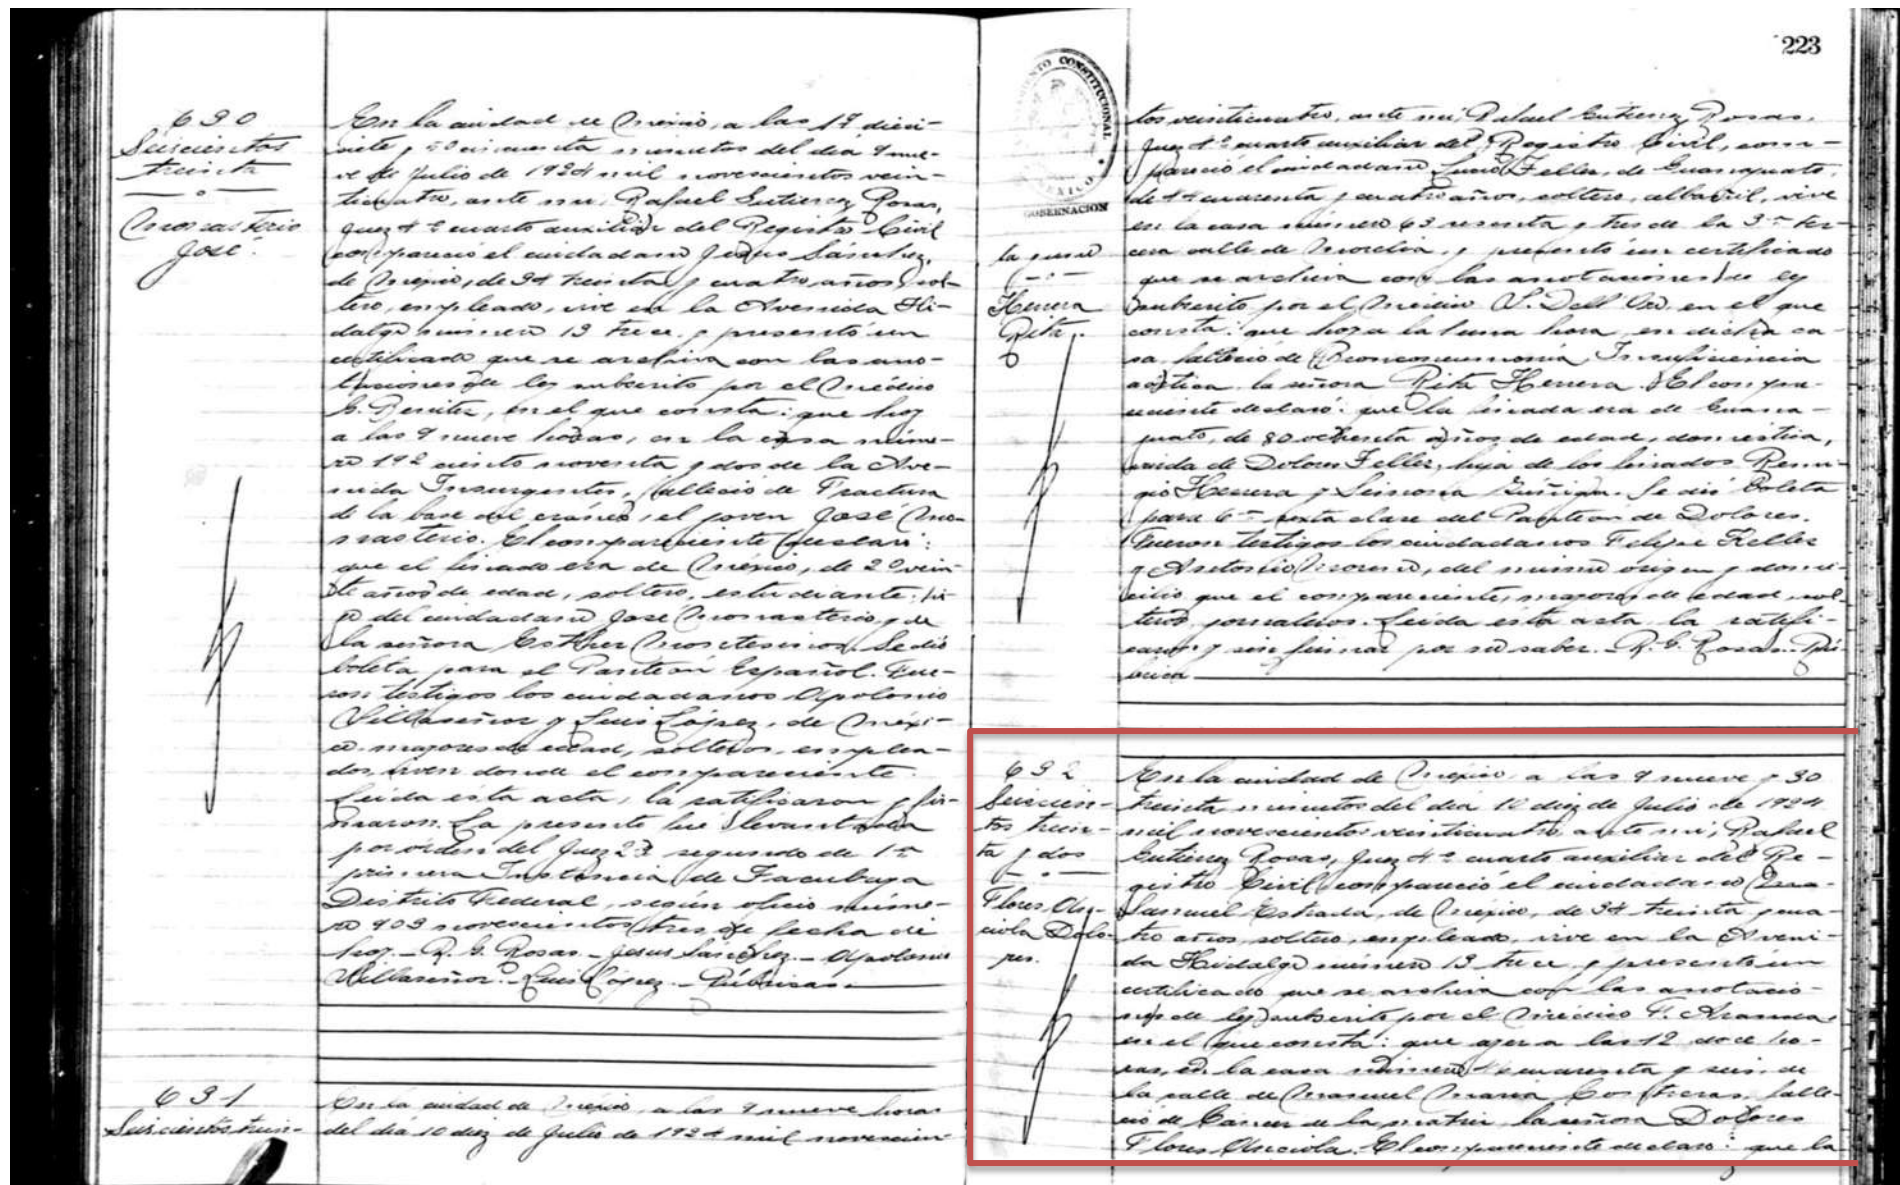 630
Seiscientos
treinta
Monasterio
José.
En la ciudad de México, a las 19 dieci-
nueve y 50 cincuenta minutos del día 9 nue-
ve de Julio de 1924 mil novecientos vein-
ticuatro, ante mí, Rafael Gutierrez Rosas,
Juez 4º cuarto auxiliar del Registro Civil
compareció el ciudadano Jesus Sánchez,
de México, de 34 treinta y cuatro años, sol-
tero, empleado, vive en la Avenida Hi-
dalgo numero 13 trece, y presentó un
certificado que se archiva con las ano-
taciones de ley subscrito por el Médico
G. Benitez, en el que consta: que hoy
a las 9 nueve horas, en la casa núme-
ro 192 ciento noventa y dos de la Ave-
nida Insurgentes, falleció de Fractura
de la base del cráneo, el joven José Mo-
nasterio. El compareciente declaró:
que el finado era de México, de 20 vein-
te años de edad, soltero, estudiante, hi-
jo del ciudadano José Monasterio y de
la señora Esther Montesinos. Se dió
boleta para el Panteón Español. Fue-
ron testigos los ciudadanos Apolonio
Villaseñor y Luis López, de Méxi-
co, mayores de edad, solteros, emplea-
dos, viven donde el compareciente.
Leida esta acta, la ratificaron y fir-
maron. La presente fué levantada
por órden del Juez 2º segundo de 1ª
primera Instancia de Tacubaya
Distrito Federal, según oficio núme-
ro 903 novecientos tres de fecha de
hoy. - R. G. Rosas. - Jesus Sánchez. - Apolonio
Villaseñor. - Luis López. - Rúbricas.
631
Seiscientos trein-
En la ciudad de México, a las 9 nueve horas
del día 10 diez de Julio de 1924 mil novecien-
223
CONSTITUCIONAL
MEXICO
GOBERNACION
ta y uno
Herrera
Rita.
tos veinticuatro, ante mí, Rafael Gutierrez Rosas,
Juez 4º cuarto auxiliar del Registro Civil, com-
pareció el ciudadano Feller, de Guanajuato,
de 44 cuarenta y cuatro años, soltero, albañil, vive
en la casa número 63 sesenta y tres de la 3ª ter-
cera calle de Morelia, y presentó un certificado
que se archiva con las anotaciones de ley
subscrito por el Médico en el que
consta: que hoy a la 1 una hora, en dicha ca-
sa, falleció de Bronconeumonía, Insuficiencia
aórtica, la señora Rita Herrera. El compa-
reciente declaró: que la finada era de Guana-
juato, de 80 ochenta años de edad, doméstica,
viuda de Dolores Feller, hija de los finados Remi-
gio Herrera y Zúñiga. Se dió boleta
para 6ª sexta clase del Panteón de Dolores.
Fueron testigos los ciudadanos Felipe Feller
y Antonio Moreno, del mismo orígen y domi-
cilio que el compareciente, mayores de edad, sol-
teros, jornaleros. Leída esta acta, la ratifi-
caron y sin firmar por no saber. - R. G. Rosas. - Rú-
brica
632
Seiscien-
tos trein-
ta y dos
Flores An-
ciola Dolo-
res.
En la ciudad de México, a las 9 nueve y 30
treinta minutos del día 10 diez de Julio de 1924
mil novecientos veinticuatro, ante mí, Rafael
Gutierrez Rosas, Juez 4º cuarto auxiliar del Re-
gistro Civil, compareció el ciudadano
Samuel Estrada, de México, de 34 treinta y cua-
tro años, soltero, empleado, vive en la Aveni-
da Hidalgo número 13 trece, y presentó un
certificado que se archiva con las anotacio-
nes de ley subscrito por el Médico F. Aranda
en el que consta: que ayer a las 12 doce ho-
ras, en la casa número 46 cuarenta y seis de
la calle de Manuel María Contreras, falle-
ció de Cáncer de la matriz, la señora Dolores
Flores Anciola. El compareciente declaró: que la